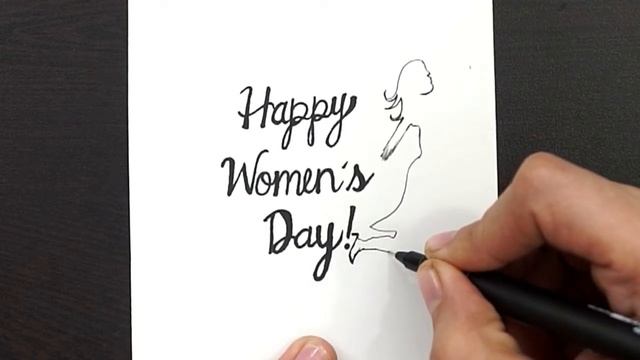 Happy
Women's
Day!